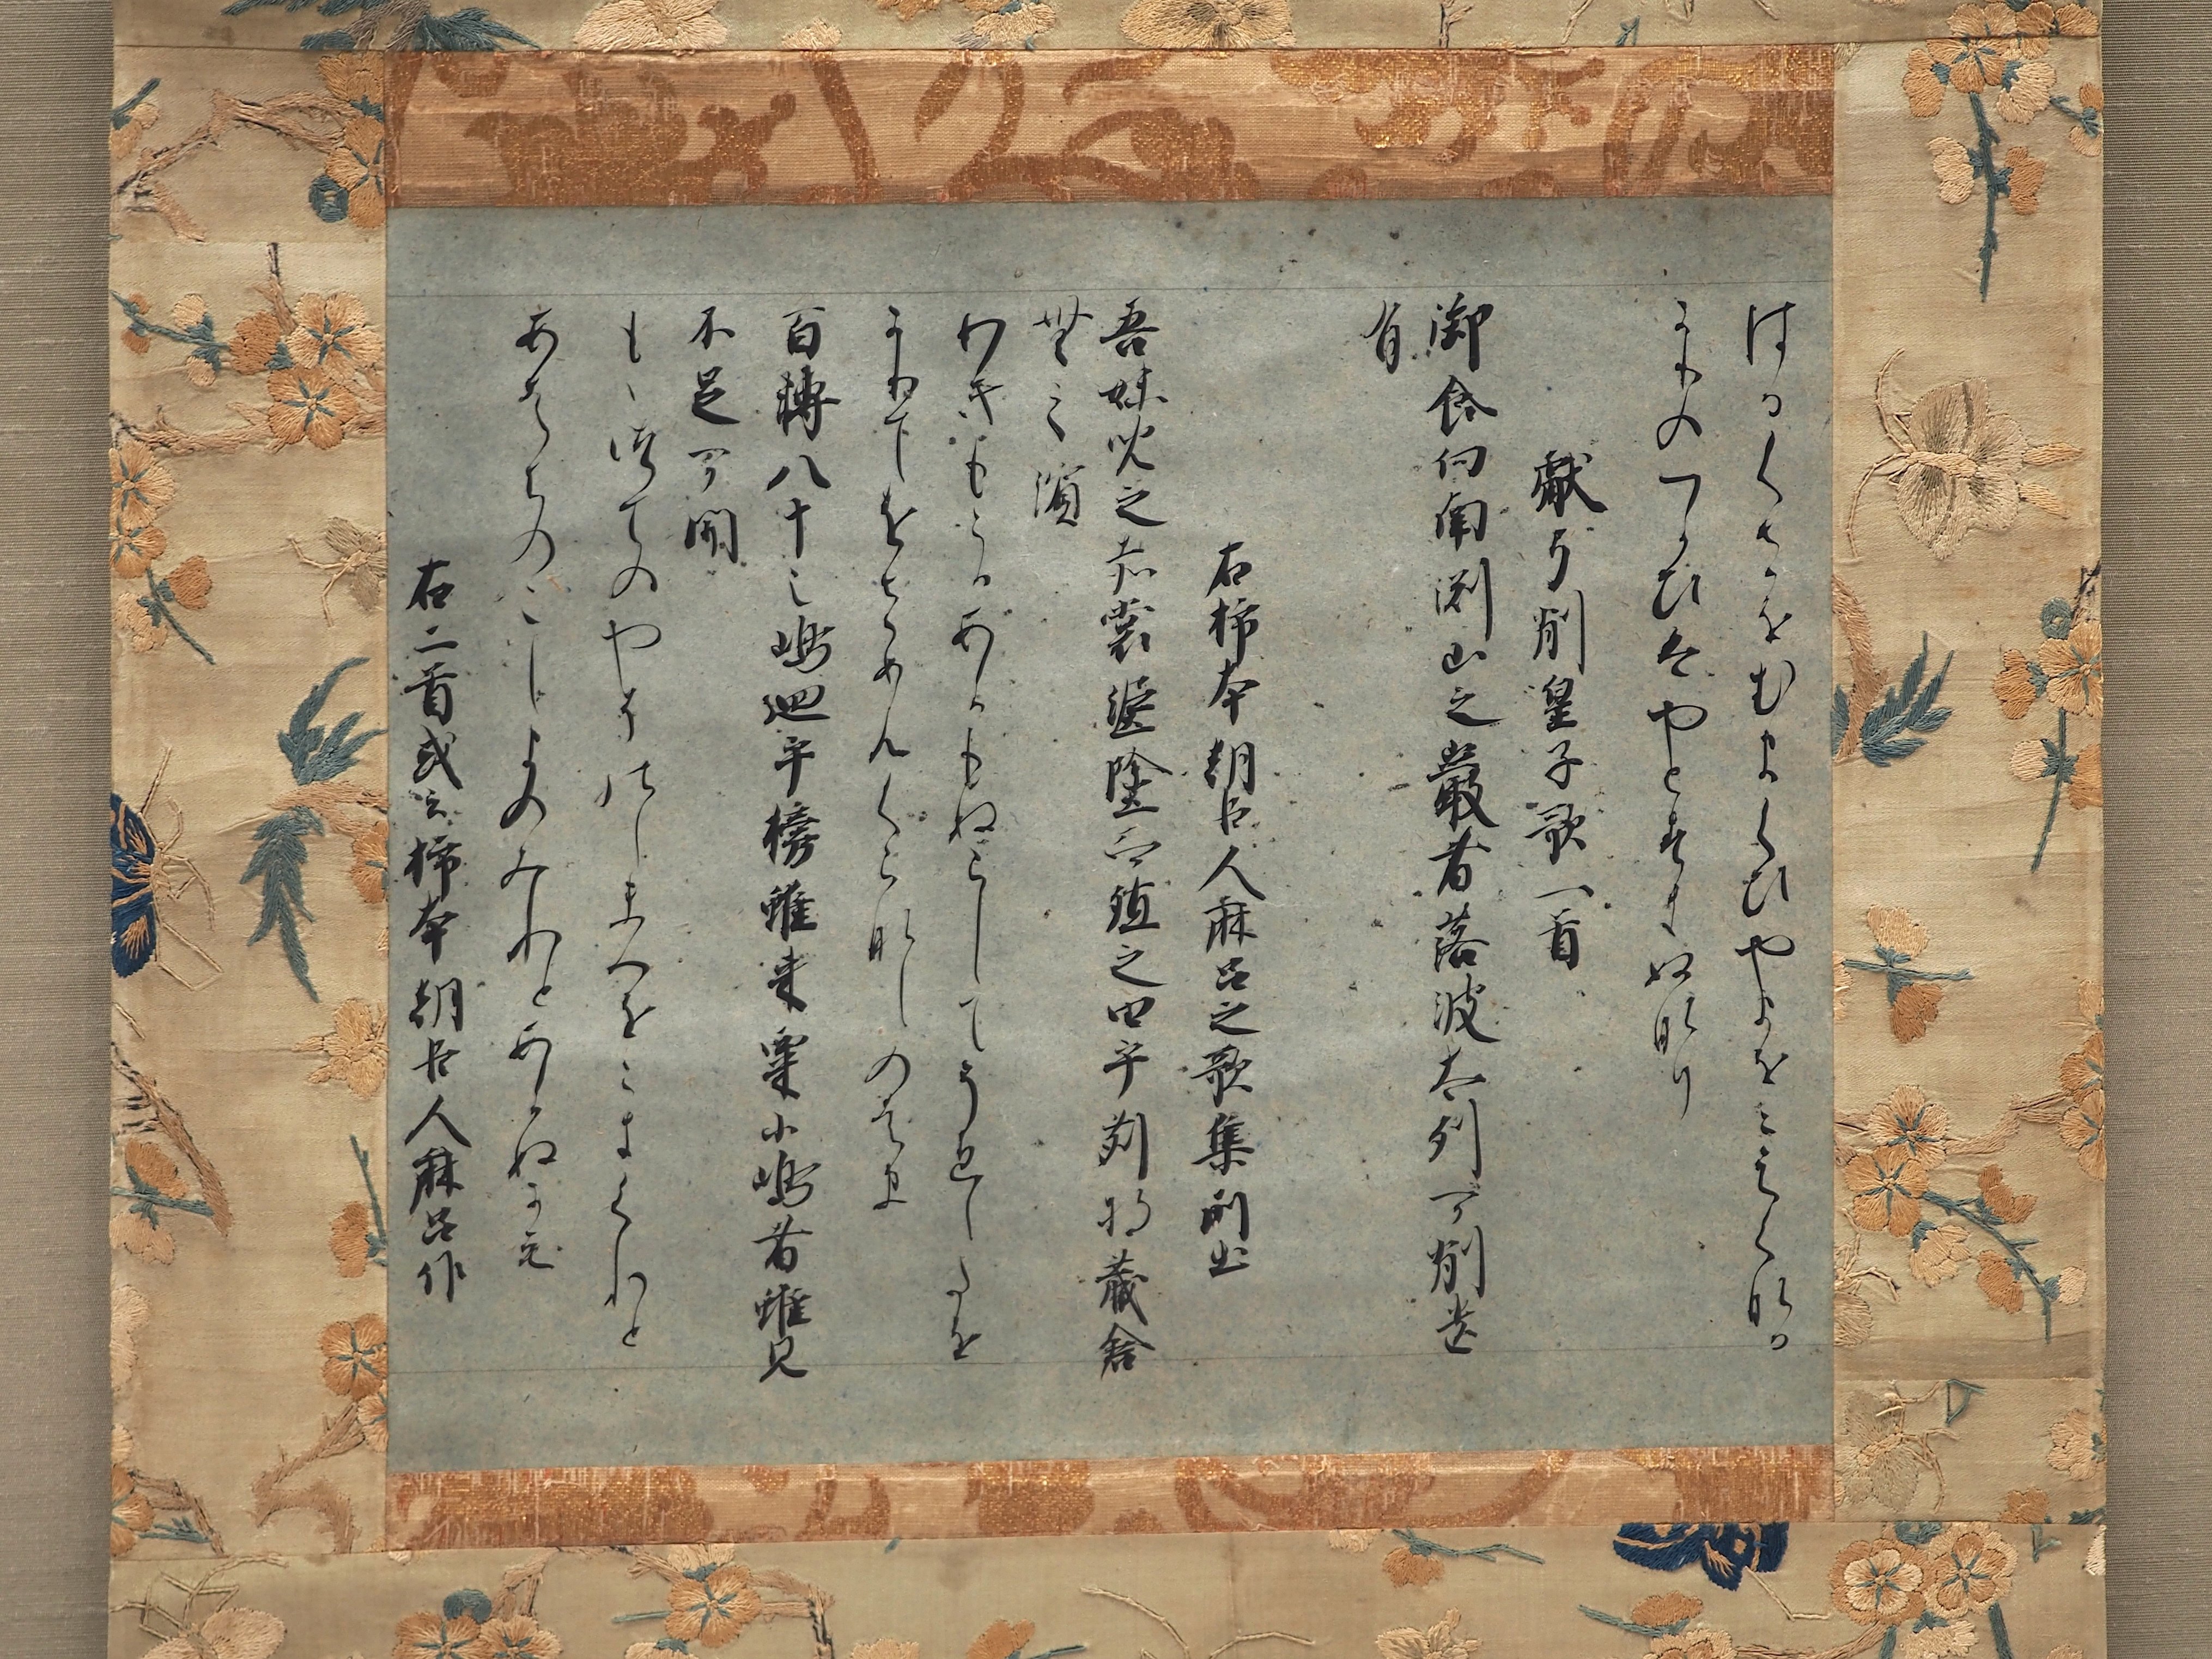 はるくさをむまくひやまをこえくなる
かりのつかひはやとすきぬなり
献弓削皇子歌一首
御食向南渕山之巌者落波太列可削遺
有
右柿本朝臣人麻呂之歌集所出
吾妹児之赤裳埿塗而殖之田乎苅将蔵倉
無之濱
わきもこかあかもぬらしてうゑしたを
かりてをさめんくらなしのはま
百轉八十之嶋廻乎榜雖来粟小嶋者雖見
不足可聞
もゝつてのやそのしまへをこきくれと
あはちのこしまのみれとあかぬかも
右二首或云柿本朝臣人麻呂作